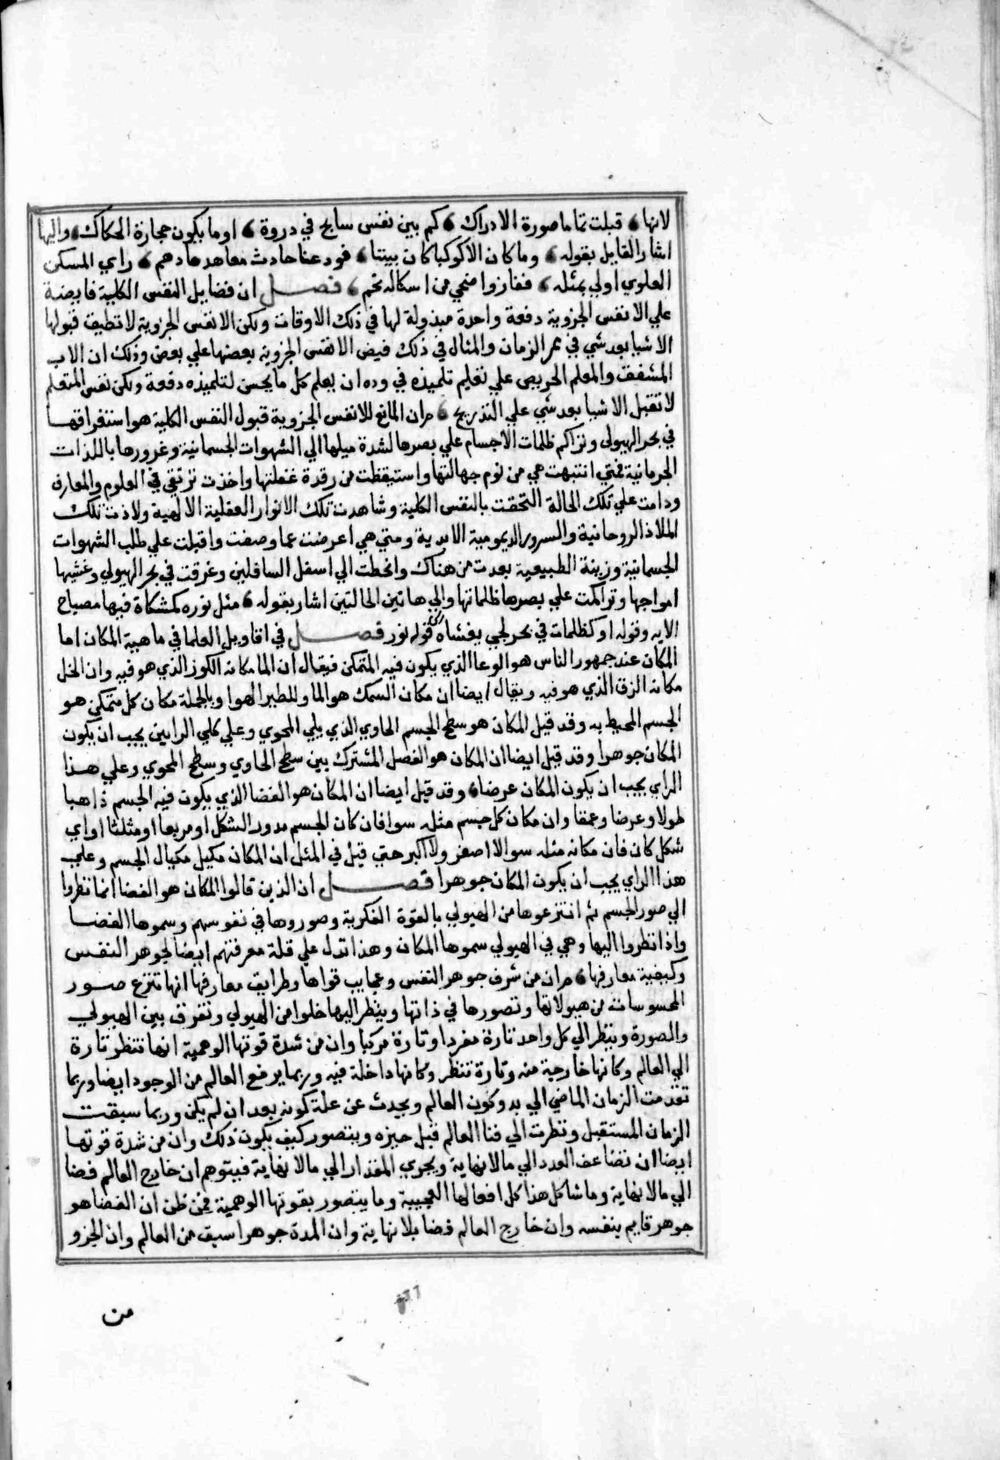 لانها، قبلت تماما صورة الادراك، كم بين نفس سابح في دروة، او ما يكون حجارة الحكاك، واليها
اشار القايل بقوله، وما كان الا كوكبا كان بيننا، فودعنا حادث معاهد عادهم، راي المسكن
العلوي اولي بمثله، ففاز واضحي من اسكاله تختم، فصل ان فضايل النفس الكلية فايضة
علي الانفس الجزوية دفعة واحدة مبذولة لها في ذلك الاوقات ولكن الانفس الجزوية لا تطيق قبولها
الا شيا بعد شي في ممر الزمان والمثال في ذلك فيض الانفس الجزوية بعضها علي بعض وذلك ان الاب
المشفق والمعلم الحريص علي تعليم تلميذه في وده ان يعلم كل ما يحسن لتلميذه دفعة ولكن نفس المتعلم
لا تقبل الا شيا بعد شي علي التدريج، مران المانع للانفس الجزوية قبول النفس الكلية هو استغراقها
في بحر الهيولي وتراكم ظلمات الاجسام علي بصرها لشدة ميلها الي الشهوات الجسمانية وغرورها باللذات
الجرمانية فمتي انتبهت هي من نوم جهالتها واستيقظت من رقدة غفلتها واخذت ترتقي في العلوم والمعارف
ودامت علي تلك الحالة التحقت بالنفس الكلية وشاهدت تلك الانوار العقلية الالهية ولاذت تلك
الملاذ الروحانية والسرور الديمومية الابدية ومتي هي اعرضت عما وصفت واقبلت علي طلب الشهوات
الجسمانية وزينة الطبيعية بعدت من هناك وانحطت الي اسفل السافلين وغرقت في بحر الهيولي وغشيها
امواجها وتراكمت علي بصرها ظلماتها والي هاتين الحالتين اشار بقوله، مثل نوره كمشكاة فيها مصباح
الايه وقوله او كظلمات في بحر لجي يغشاه الي قوله نور فصل في اقاويل العلما في ماهية المكان اما
المكان عند جمهور الناس هو الوعا الذي يكون فيه المتمكن فيقال ان الما مكانه الكوز الذي هو فيه وان الخل
مكانه الزق الذي هو فيه ويقال ايضا ان مكان السمك هو الما وللطير الهوا وبالجملة مكان كل متمكن هو
الجسم المحيط به وقد قيل المكان هو سطح الجسم الحاوي الذي يلي المحوي وعلي كلي الرايين يجب ان يكون
المكان جوهرا وقد قيل ايضا ان المكان هو الفصل المشترك بين سطح الحاوي وسطح المحوي وعلي هذا
الراي يجب ان يكون المكان عرضا، وقد قيل ايضا ان المكان هو الفضا الذي يكون فيه الجسم ذاهبا
طولا وعرضا وعمقا وان مكان كل جسم مثله سوا فان كان الجسم مدور الشكل او مربعا او مثلثا او اي
شكل كان فان مكانه مثله سوا لا اصغر ولا اكبر حتي قيل في المثل ان المكان مكيل مكيال الجسم وعلي
هذا الراي يجب ان يكون المكان جوهرا فصل ان الذين قالوا المكان هو الفضا انما نظروا
الي صور الجسم ثم انتزعوها من الهيولي بالقوة الفكرية وصوروها في نفوسهم وسموها الفضا
واذا نظروا اليها وهي في الهيولي سموها المكان وهذا تدل علي قلة معرفتهم ايضا لجوهر النفس
وكيفية معارفها، مران من شرف جوهر النفس وعجايب قواها وطرايف معارفها انها تنزع صور
المحسوسات من هيولاتها وتصورها في ذاتها وينظر اليها خلوا من الهيولي وتفرق بين الهيولي
والصورة وينظر الي كل واحد تارة مفردا وتارة مركبا وان من شدة قوتها الوهمية انها تنظر تارة
الي العالم وكانها خارجة منه وتارة تنظر وكانها داخلة فيه وربما يرفع العالم من الوجود ايضا وربما
تقدمت الزمان الماضي الي بدو كون العالم ويحدث عن علة كونه بعد ان لم يكن وربما سبقت
الزمان المستقبل ونظرت الي فنا العالم قبل حينه ويتصور كيف يكون ذلك وان من شدة قوتها
ايضا ان تضاعف العدد الي ما لا نهاية ويجزي المقدار الي ما لا نهاية فيتوهم ان خارج العالم فضا
الي ما لا نهاية وما شاكل هذا كل افعالها العجيبة وما يتصور بقوتها الوهمية فمن ظن ان الفضا هو
جوهر قايم بنفسه وان خارج العالم فضا بلا نهاية وان المدة جوهر اسبق من العالم وان الجزو
من